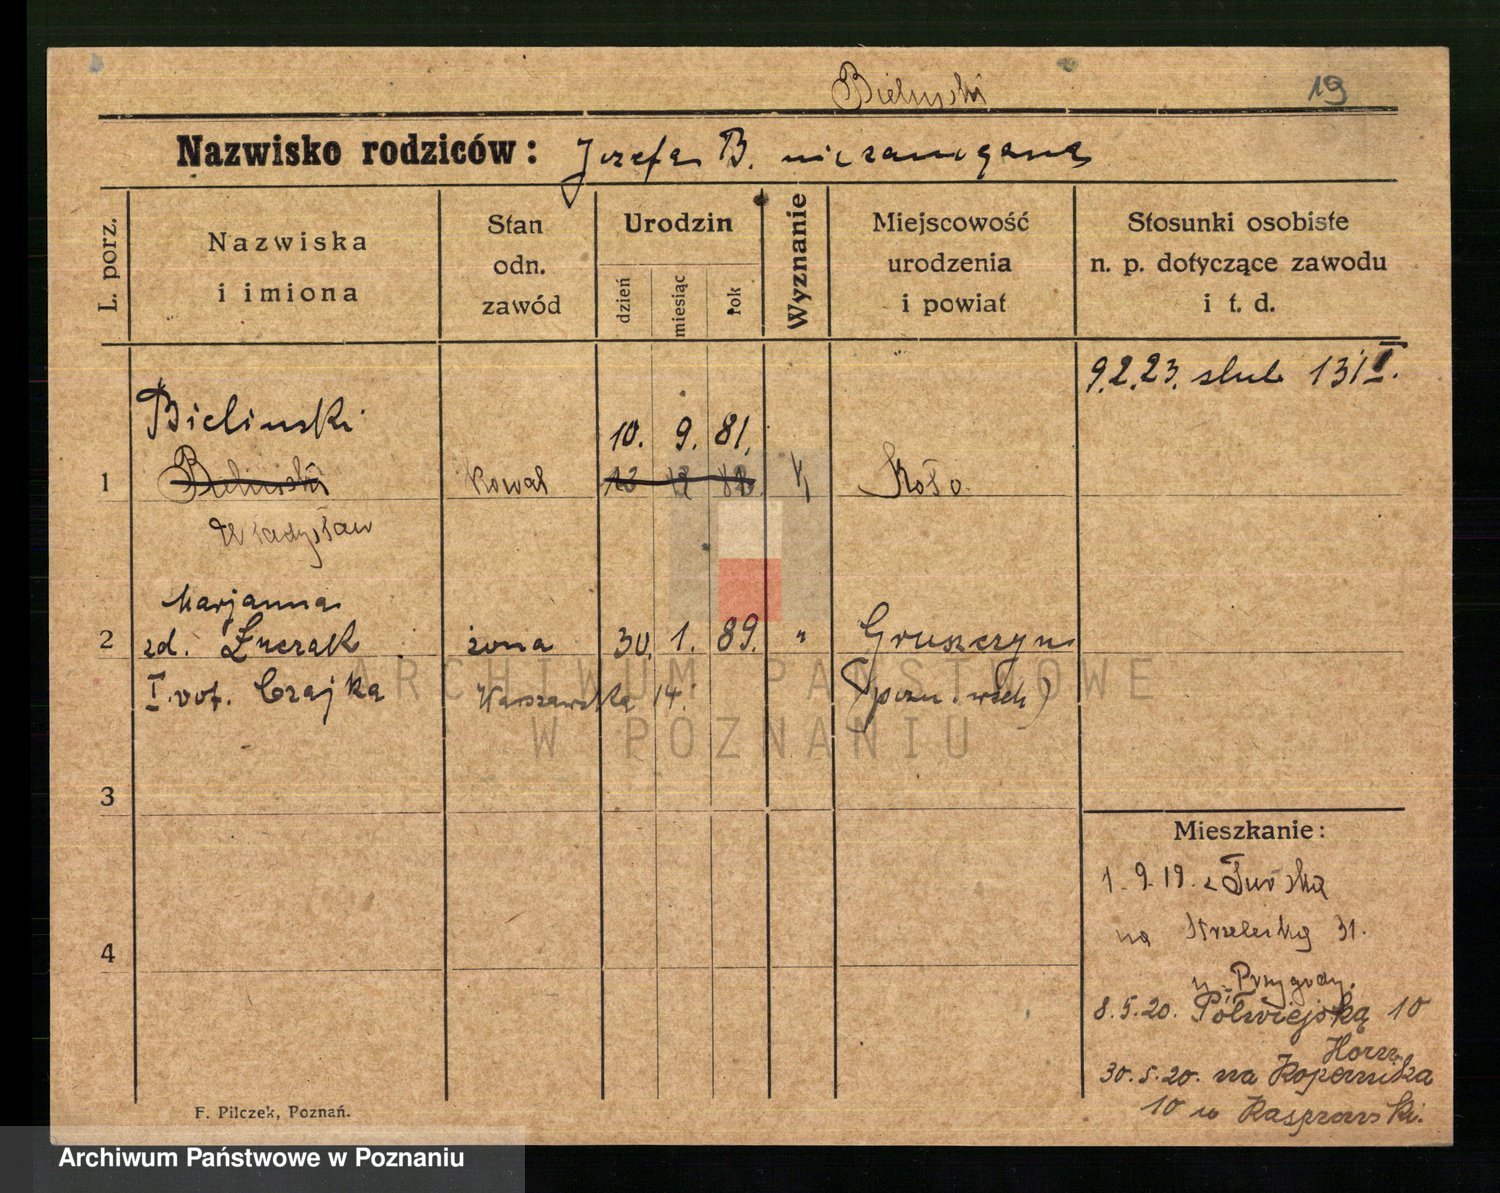 Bielinski
19
Nazwisko rodziców: Jozefa B. niezamęzna
L. porz.
Nazwiska i imiona
Stan odn. zawód
Urodzin
dzień
miesiąc
rok
Wyznanie
Miejscowość urodzenia i powiat
Stosunki osobiste n. p. dotyczące zawodu i t. d.
9.2.23. slub 131 I.
Bielinski
10. 9. 81.
1 Bielinski Kowal K Koło
Władysław
Marjanna
2 zd. Żuczak żona 30. 1. 89. " Gruszczyn
I. vot. Czajka Warszawska 14. (pozn. wsch)
3
4
Mieszkanie:
1.9.19. z
na Strzelecką 31.
u Przygody.
8.5.20. Półwiejską 10
30.5.20. na Kopernika
10 u Kasprowski.
F. Pilczek, Poznań.
ARCHIWUM PAŃSTWOWE
W POZNANIU
Archiwum Państwowe w Poznaniu